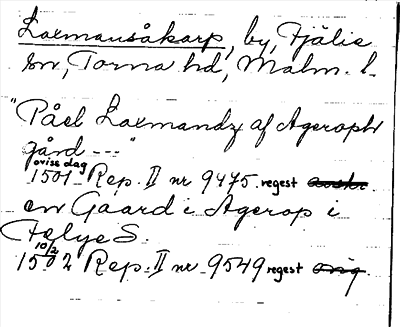 Laxmansåkarp, by, Fjälie
sn, Torna hd, Malm. l.
"Påel Laxmandz af Ageroph
gård ---"
ovise dag
1501 Rep. II nr 9475 regest avskr.
en Gaard i Agerop i
Felye S.
10/2
1502 Rep. II nr 9549 regest orig